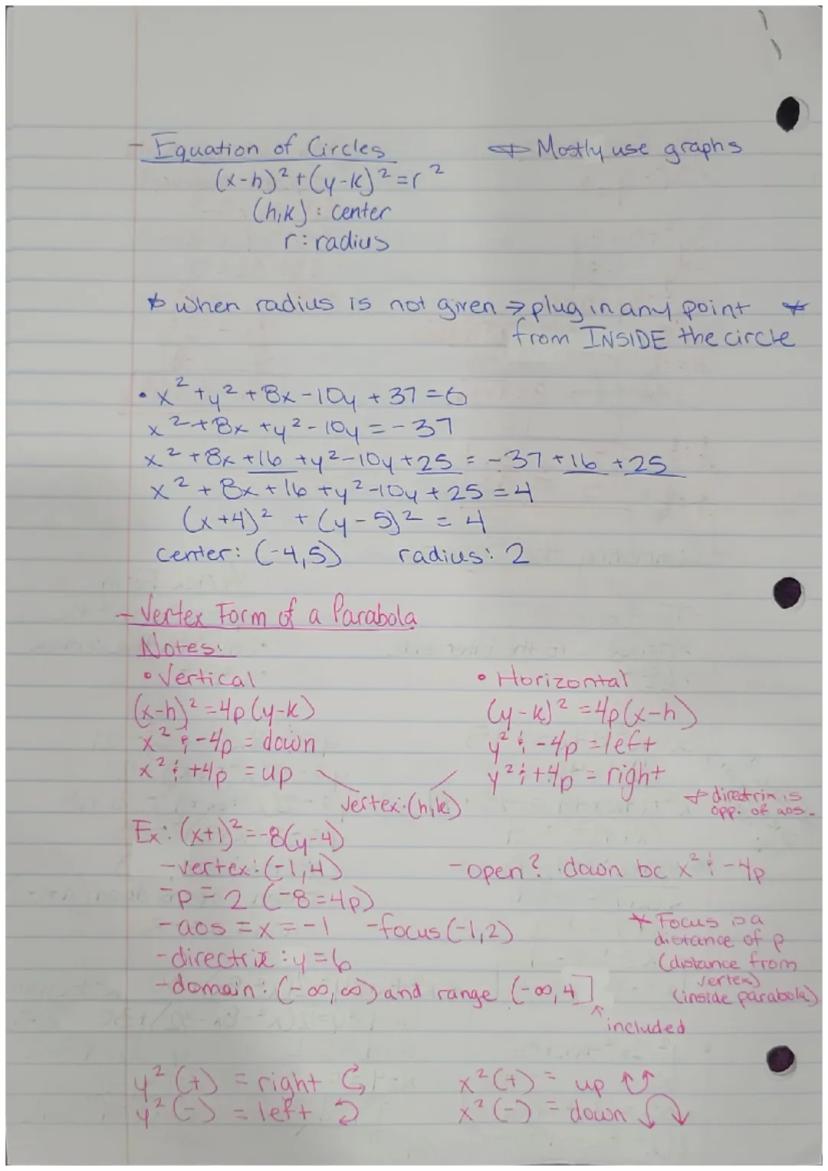 - Equation of Circles
* Mostly use graphs
(x-h)²+(y-k)²=r²
(h,k): center
r: radius
* when radius is not given ⇒ plug in any point *
from INSIDE the circle
• x²+y²+8x-10y+37=0
x²+8x+y²-10y=-37
x²+8x+16+y²-10y+25=-37+16+25
x²+8x+16+y²-10y+25=4
(x+4)²+(y-5)²=4
center: (-4,5) radius: 2
- Vertex Form of a Parabola
Notes:
• Vertical
• Horizontal
(x-h)²=4p(y-k)
(y-k)²=4p(x-h)
x² & -4p = down
y² & -4p = left
x² & +4p = up
y² & +4p = right
vertex: (h,k)
* directrix is
opp. of aos.
Ex: (x+1)²=-8(y-4)
-vertex: (-1,4)
-open? down bc x² & -4p
-p=2 (-8=4p)
-aos = x = -1 -focus (-1,2)
-directrix: y=6
-domain: (-∞,∞) and range (-∞,4]
included
* Focus is a
distance of p
(distance from
vertex)
(inside parabola)
y² (+) = right
x² (+) = up
y² (-) = left
x² (-) = down